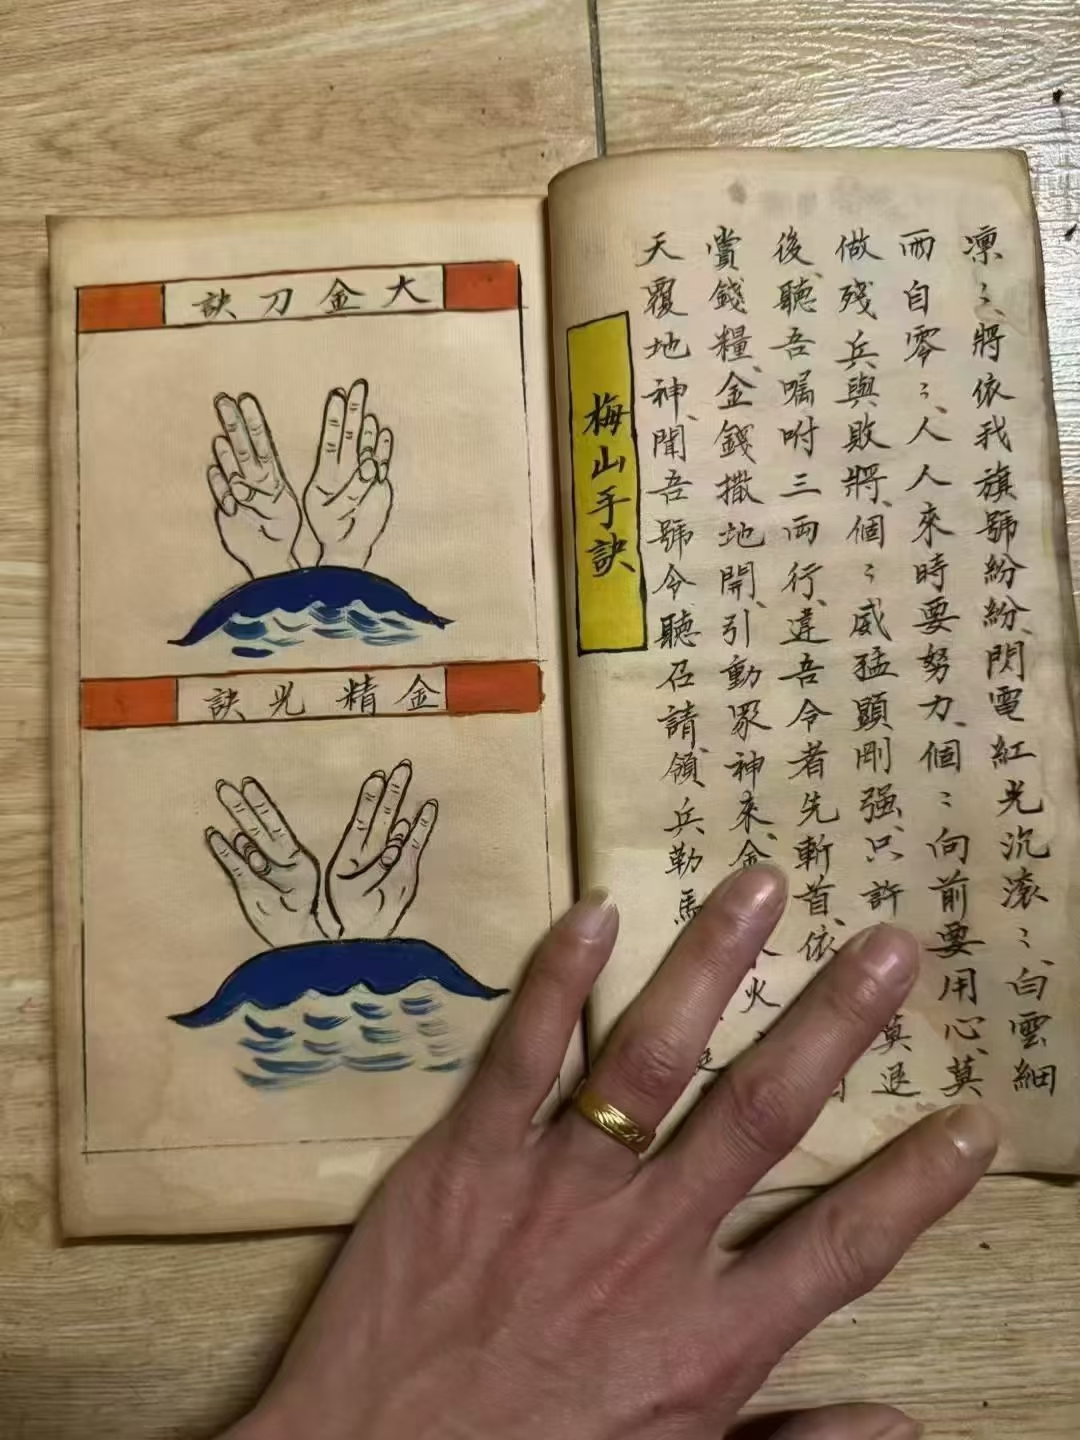 凛〻、將依我旗號紛紛、閃電紅光沉滚〻、白雲細
雨自零〻、人人來時要努力、個〻向前要用心、莫
做殘兵與敗將、個〻威猛顯剛强、只許 莫退
後、聽吾嘱咐三両行、違吾令者先斬首、依
賞錢糧、金錢撒地開、引動眾神來、金 火
天覆地神、聞吾號令聽召請、領兵勒馬
梅山手訣
大金刀訣
金精光訣